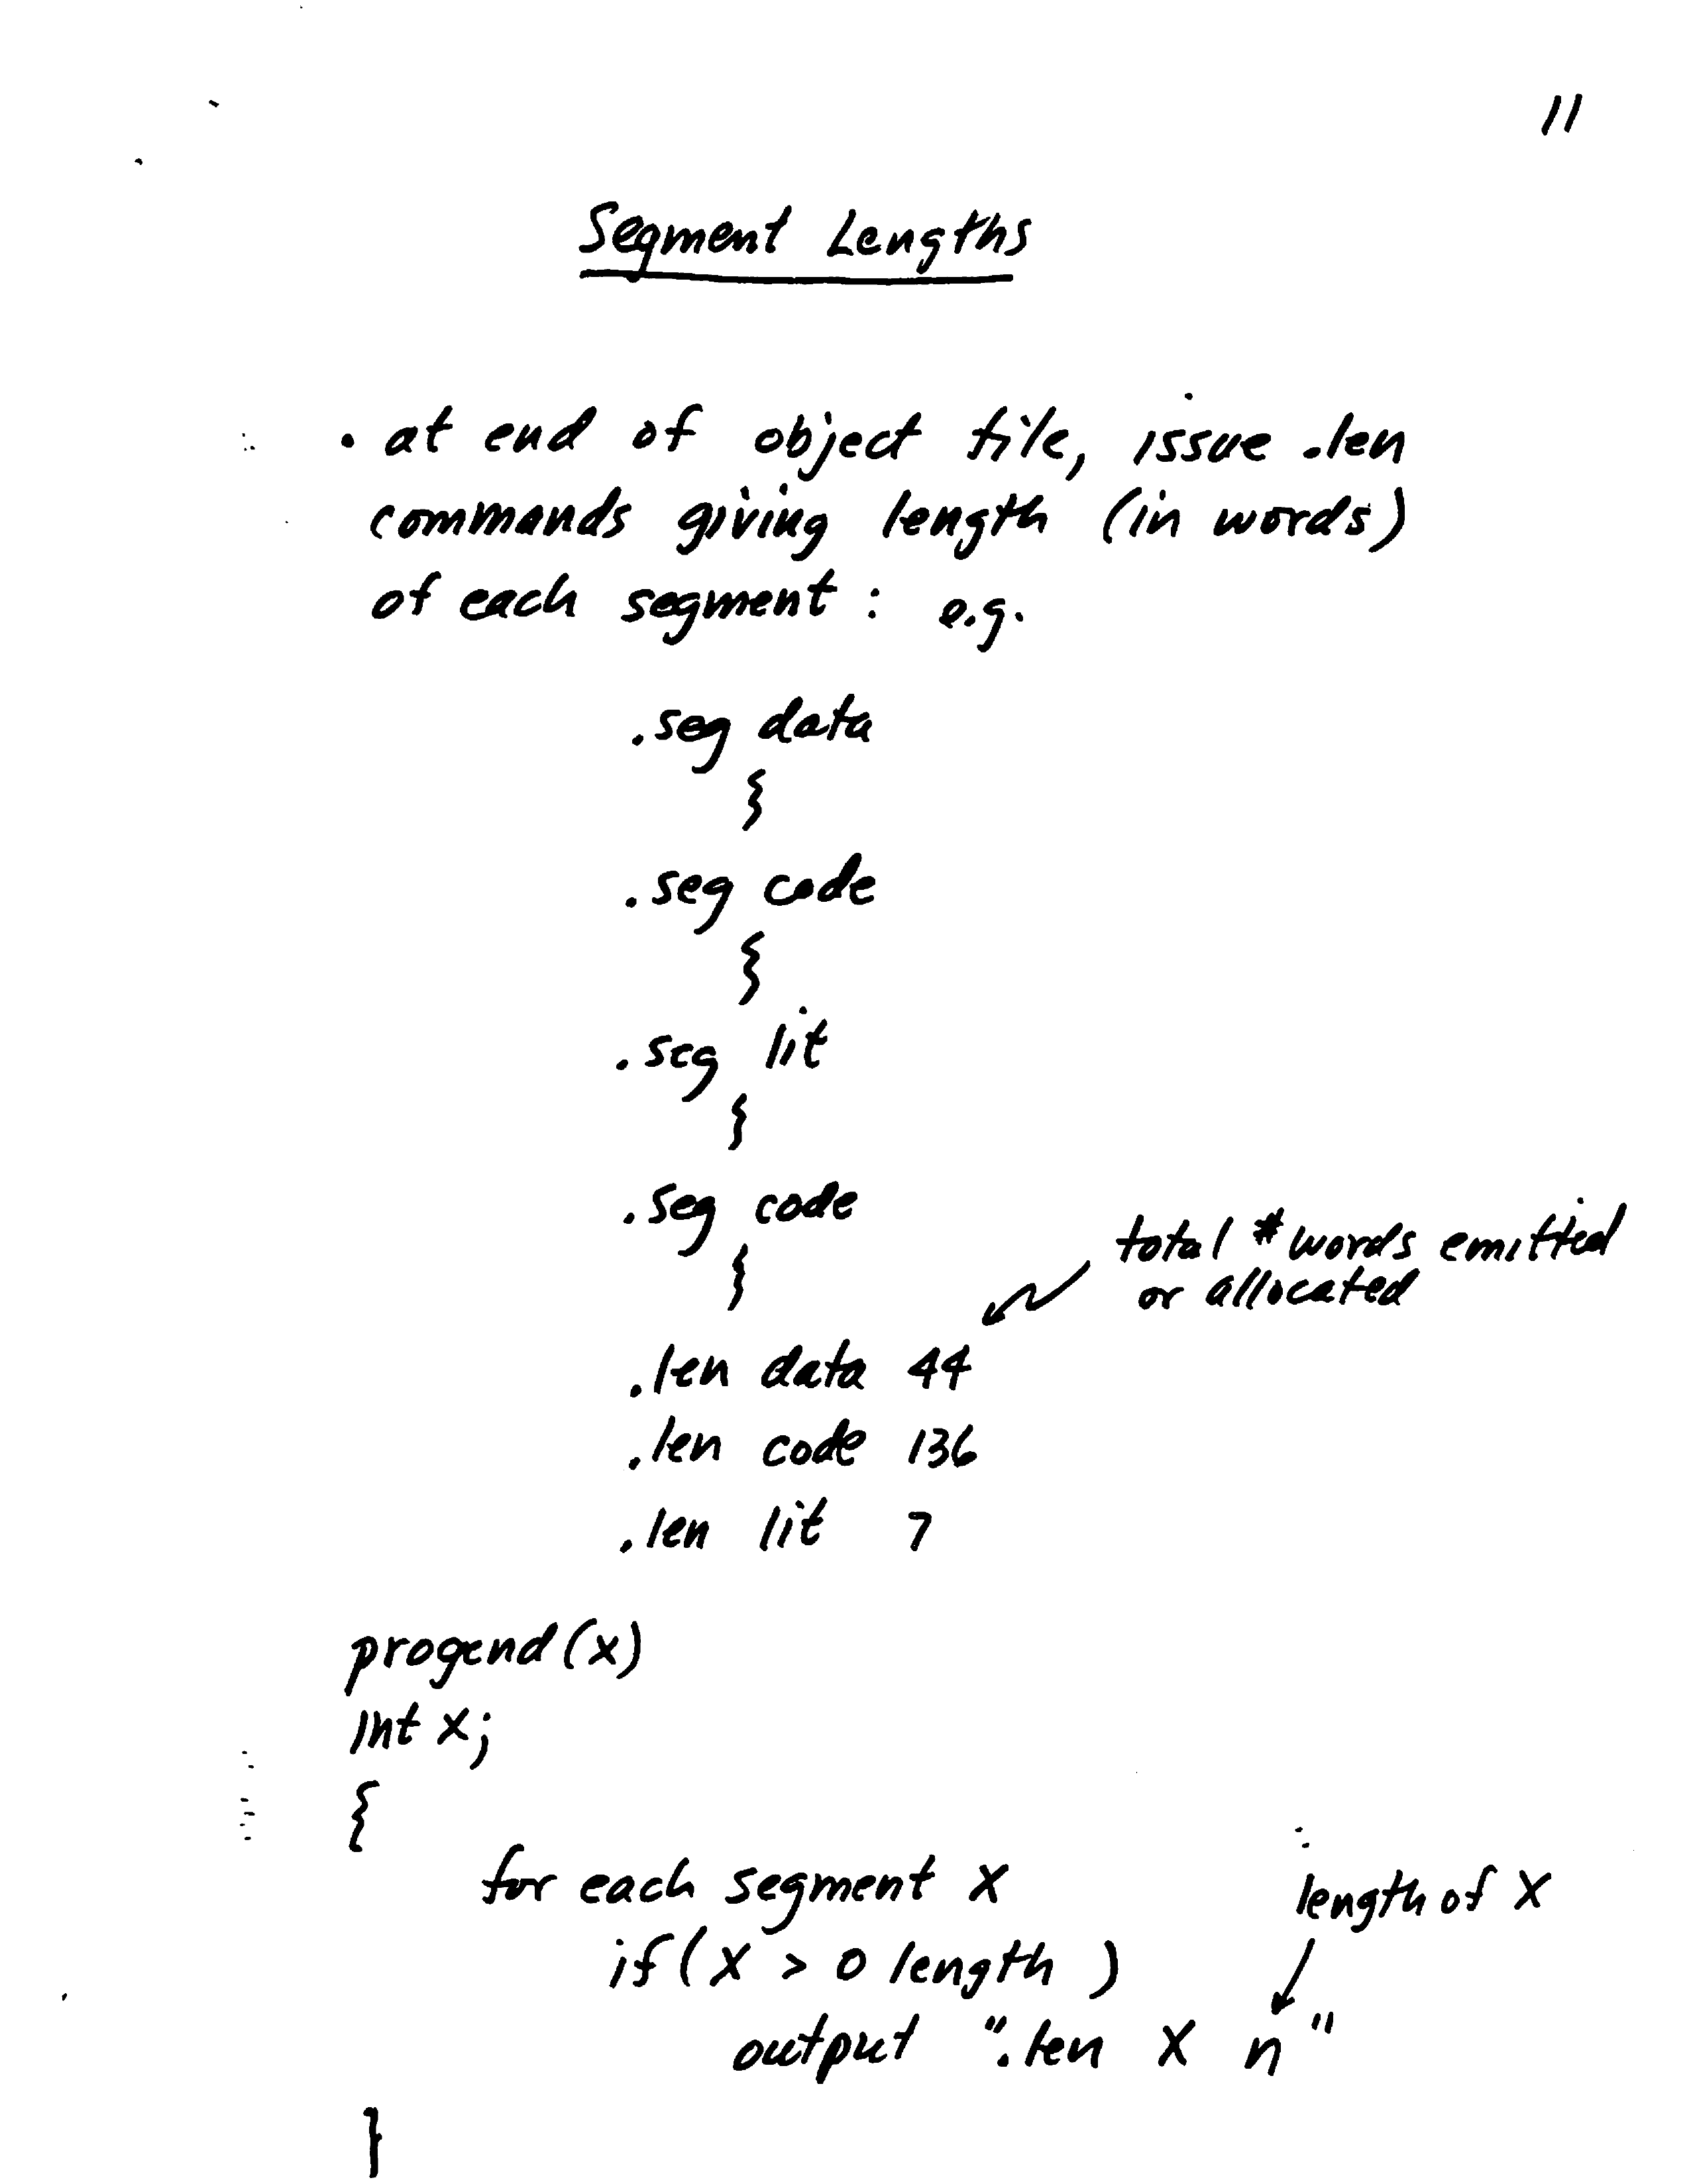 11
Segment Lengths
• at end of object file, issue .len
commands giving length (in words)
of each segment : e.g.
.seg data
.seg code
.seg lit
.seg code
total # words emitted
or allocated
.len data 44
.len code 136
.len lit 7
progend(x)
int x;
{
for each segment X
length of X
if (X > 0 length )
output ".len X n"
}